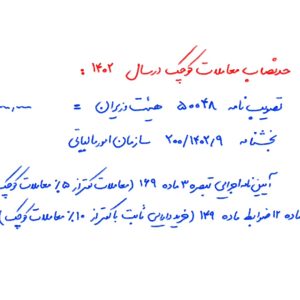 حدنصاب معاملات کوچک در سال ۱۴۰۲ :
تصویب نامه ۵۰۰۴۸ هیئت وزیران =
بخشنامه ۲۰۰/۱۴۰۲/۹ سازمان امور مالیاتی
آیین نامه اجرایی تبصره ۳ ماده ۱۶۹ (معاملات کمتر از ۵٪ معاملات کوچک
ماده ۱۲ ضوابط ماده ۱۴۹ (خرید دارایی ثابت با کمتر از ۱۰٪ معاملات کوچک)